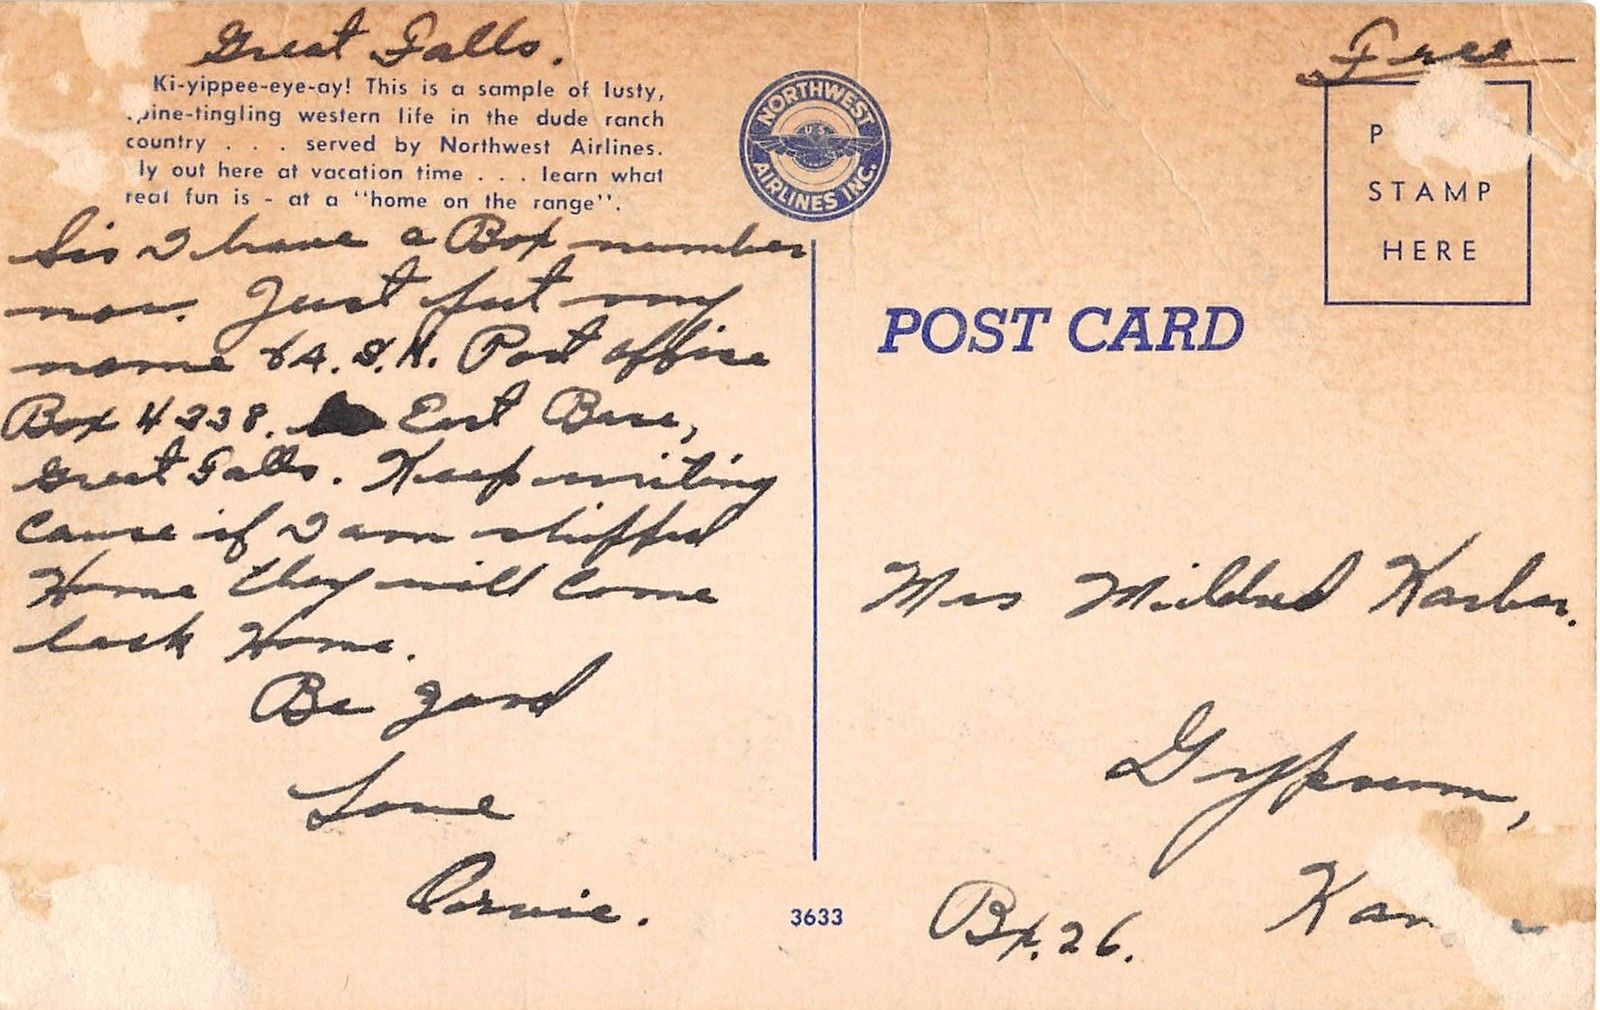 Great Falls.
Free
Ki-yippee-eye-ay! This is a sample of lusty,
pine-tingling western life in the dude ranch
country . . . served by Northwest Airlines.
ly out here at vacation time . . . learn what
real fun is - at a "home on the range".
NORTHWEST
U.S.
AIRLINES INC.
P
STAMP
HERE
POST CARD
Sis I have a Box number
now. Just put my
name & A.S.N. Post office
Box 4238. East Base,
Great Falls. Keep writing
Cause if I am shipped
Home they will come
back Home.
Be good
Love
Mrs Mildred
Gypsum,
Kan
Bx. 26.
3633